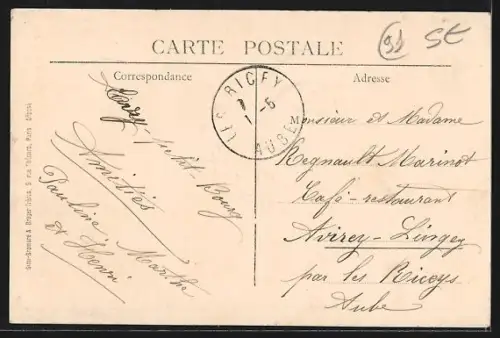 CARTE POSTALE
Correspondance
Adresse
91
St
LES RICEY
1 -6
AUBE
Evry-petit-Bourg
Amitiés
Pauline, Marthe
et Henri
Monsieur et Madame
Regnault Marinot
Café-restaurant
Avirey-Lingey
par les Riceys
Aube